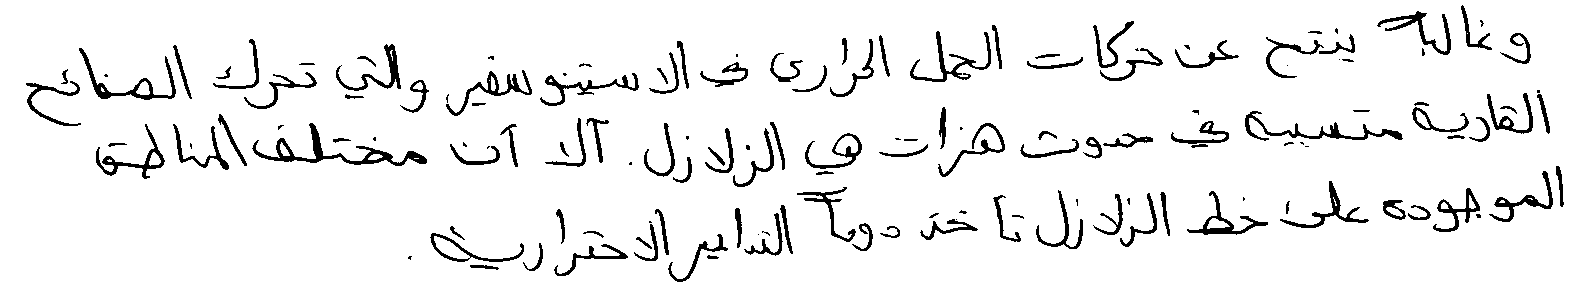 وغالباً ينتج عن حركات الحمل الحراري في الاستينوسفير والتي تحرك الصفائح
القارية متسببه في حدوث هزات هي الزلازل. ألا أن مختلف المناطق
الموجوده على خط الزلازل تأخذ دوماً التدابير الاحترازيه.